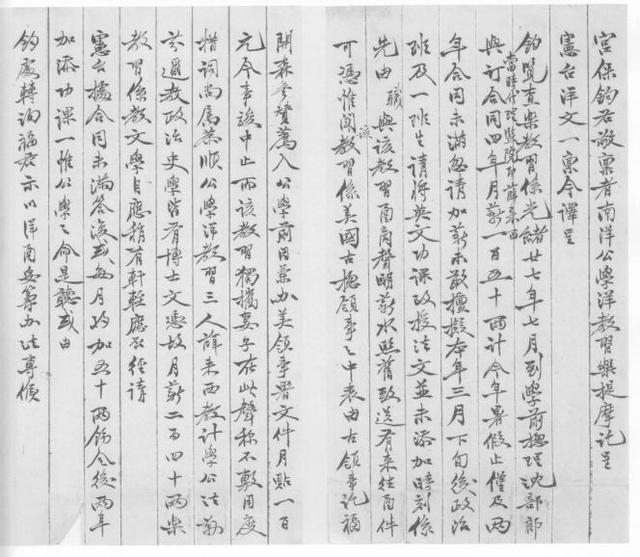 宫保鈞座敬稟者南洋公學洋教習樂提摩託呈
憲台洋文一稟今譯呈
鈞覽查樂教習係光緒廿七年七月到學前總理沈部郎
當時代理監院即薛來西
與訂合同四年月薪一百五十兩計今年暑假止僅及兩
年合同未滿忽請加薪未敢擅擬本年三月下旬後政治
班及一班生請將英文功課改授法文並未添加時刻係
先由職與該教習函商聲明薪水照舊致送有來往函件
可憑惟聞該教習係美國古總領事之中表由古領事託福
開森參贊薦入公學前因兼办美領事署文件月貼一百
元今事竣中止而該教習獨攜妻子在此聲稱不敷用度
措詞尚屬恭順公學洋教習三人薛來西教計學公法勒
芬邇教政治史學皆有博士文憑故月薪二百四十兩樂
教習係教文學自應稍有軒輊應否徑請
憲台據合同未滿答復或每月約加五十兩飭令後兩年
加添功課一惟公學之命是聽或由
鈞處轉詢福君示以洋函办法專候